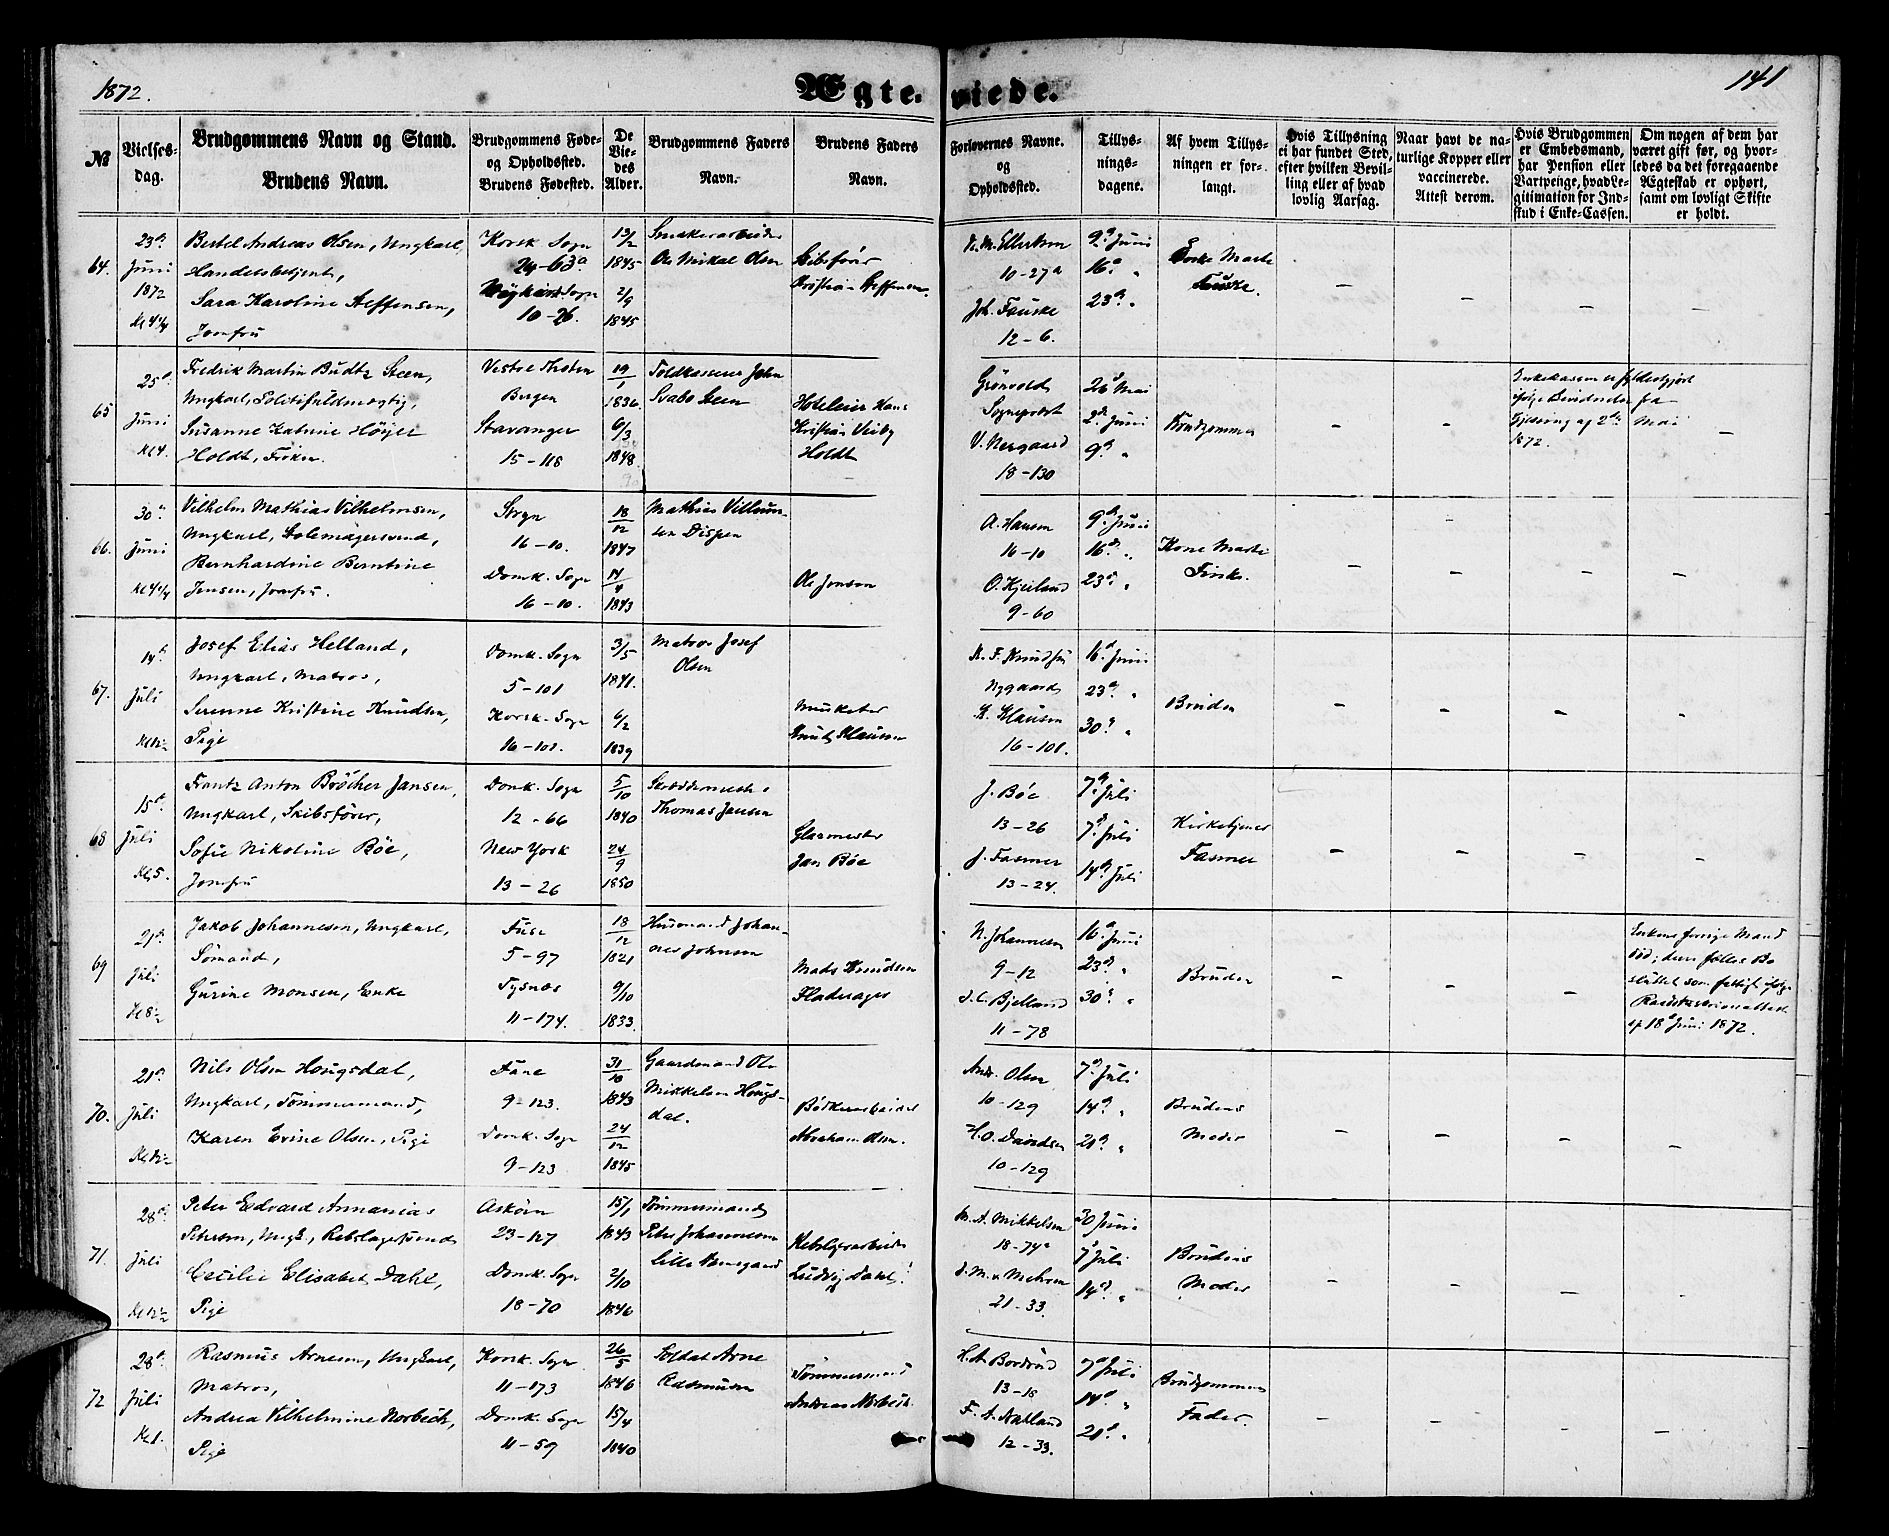 1872.
Ægteviede.
141
№
Vielses-
dag.
Brudgommens Navn og Stand.
Brudens Navn.
Brudgommens Føde-
og Opholdssted.
Brudens Fødested.
De
Vie-
des
Alder.
Brudgommens Faders
Navn.
Brudens Faders
Navn.
Forlovernes Navne.
og
Opholdssted.
Tillys-
nings-
dagene.
Af hvem Tillys-
ningen er for-
langt.
Hvis Tillysning
ei har fundet Sted,
efter hvilken Bevil-
ling eller af hvad
lovlig Aarsag.
Naar havt de na-
turlige Kopper eller
vaccinerede.
Attest derom.
Hvis Brudgommen
er Embedsmand,
har Pension eller
Vartpenge, hvad Le-
gitimation for Ind-
skud i Enke-Cassen.
Om nogen af dem har
været gift før, og hvor-
ledes da det foregaaende
Ægteskab er ophørt,
samt om lovligt Skifte
er holdt.
64.
23d
Juni
1872
Kl 4 1/4
Bertel Andreas Olsen, Ungkarl,
Handelsbetjent,
Sara Karoline Steffensen,
Jomfru
Korsk. Sogn
24-63a
Sogn
10-26.
13/2
1845
2/9
1845
Ole Mikal Olsen
Skibsfører
Kristian Steffensen.
10-27a
Joh. Fauske
12-6.
9d Juni
16d "
23d "
Fauske.
-
-
-
-
65
25d
Juni
Kl 4.
Fredrik Martin Budtz Steen,
Ungkarl, Politifuldmægtig,
Susanne Katrine Høyer
Holdt, Frøken.
Vestre Thoten
Bergen
Stavanger
15-118
19/1
1836.
6/3
1848.
Toldkasserer John
Svabo Steen
Hoteleier Hans
Kristian Veiby
Holdt
Grönvold
Sogneprest
V. Nergaard
18-130
26d Mai
2d Juni
9d "
Brudgommen
-
-
Enkekassen er fyldestgjort
Gjessing af 2d Mai
1872.
-
66.
30d
Juni
Kl 4 1/4
Vilhelm Mathias Vilhelmsen,
Ungkarl, Stolemagersvend,
Bernhardine Berntine
Jensen, Jomfru.
Stryn
16-10.
Domk. Sogn
16-10.
18/12
1847
14/4
1843
Mathias Villum-
sen Dispen
Ole Jonson
A. Hansen
16-10
O. Kjeiland
9-60
9d Juni
16d "
23d "
Kone Marte
-
-
-
-
67.
14d
Juli
Josef Elias Helland,
Ungkarl, Matros,
Serenne Kristine Knudsen,
Pige
Domk. Sogn
5-101
Korsk. Sogn
16-101.
3/5
1841.
6/2
1839
Matros Josef
Olsen
Musketer
Knud Klausen
Nygaard
K. Klausen
16-101.
16d Juni
23d "
30d "
Bruden
-
-
-
-
68
15d
Juli
Kl 5.
Frantz Anton Bröcher Jansen,
Ungkarl, Skibsfører,
Sofie Nikoline Böe,
Jomfru
Domk. Sogn
12-66
New York
13-26
5/10
1840
24/9
1850
Skræddermester
Thomas Jansen
Glasmester
Jan Böe
J. Böe
13-26
J. Fasmer
13-24.
7d Juli
7d Juli
14d Juli
Kirketjener
Fasmer
-
-
-
-
69
21d
Juli
Jakob Johannesen, Ungkarl,
Sömand,
Gurine Monsen, Enke
Fuse
5-97
Tysnæs
11-174.
18/12
1821
9/10
1833.
Husmand Johan-
nes Johnsen
Mads Knudsen
Fladerager
N. Johannesen
9-12
J. C. Bjelland
11-78
16d Juni
23d "
30d "
Bruden
-
-
-
Enkens forrige Mand
död; deres fælles Bo
sluttet som fattigt ifølge
af 18d Juni 1872.
70.
21d
Juli
Nils Olsen Hougsdal,
Ungkarl, Tømmermand,
Karen Evine Olsen, Pige
Fane
9-123.
Domk. Sogn
9-123
31/10
1843
24/12
1845
Gaardmand Ole
Mikkelsen Hougs-
dal.
Bödkerarbeider
Abraham Olsen.
Andr. Olsen
10-129
H.O. Davidsen
10-129
7d Juli
14d "
21d "
Brudens
Moder
-
-
-
-
71.
28d
Juli
Peter Edvard Annanias
Petersen, Ungk., Rebslagersvend
Cecilie Elisabet Dahl,
Pige
Askøen
23-127
Domk. Sogn
18-70
15/1
1843
2/10
1846
Tömmermand
Peter Johannesen
Lille
Rebslagerarbeider
Ludvig Dahl.
M. A. Mikkelsen
18-74a
21-33.
30 Juni
7d Juli
14d "
Brudens
Moder
-
-
-
-
72
28d
Juli
Kl 1.
Rasmus Arnesen, Ungkarl,
Matros,
Andrea Vilhelmine Norbech,
Pige
Korsk. Sogn
11-173
Domk. Sogn
11-59
26/5
1846
15/4
1840
Soldat Arne
Rasmusen
Tömmermand
Andreas Norbech
13-18
F. A. Natland
12-33.
7d Juli
14d "
21d "
Brudgommens
Fader.
-
-
-
-